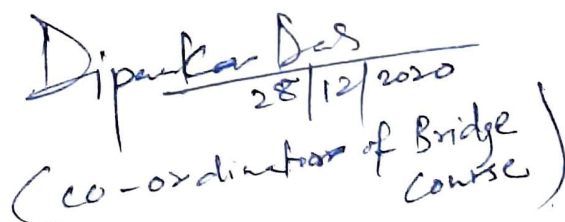 Dipankar Das
28/12/2020
(co-ordinator of Bridge
course)